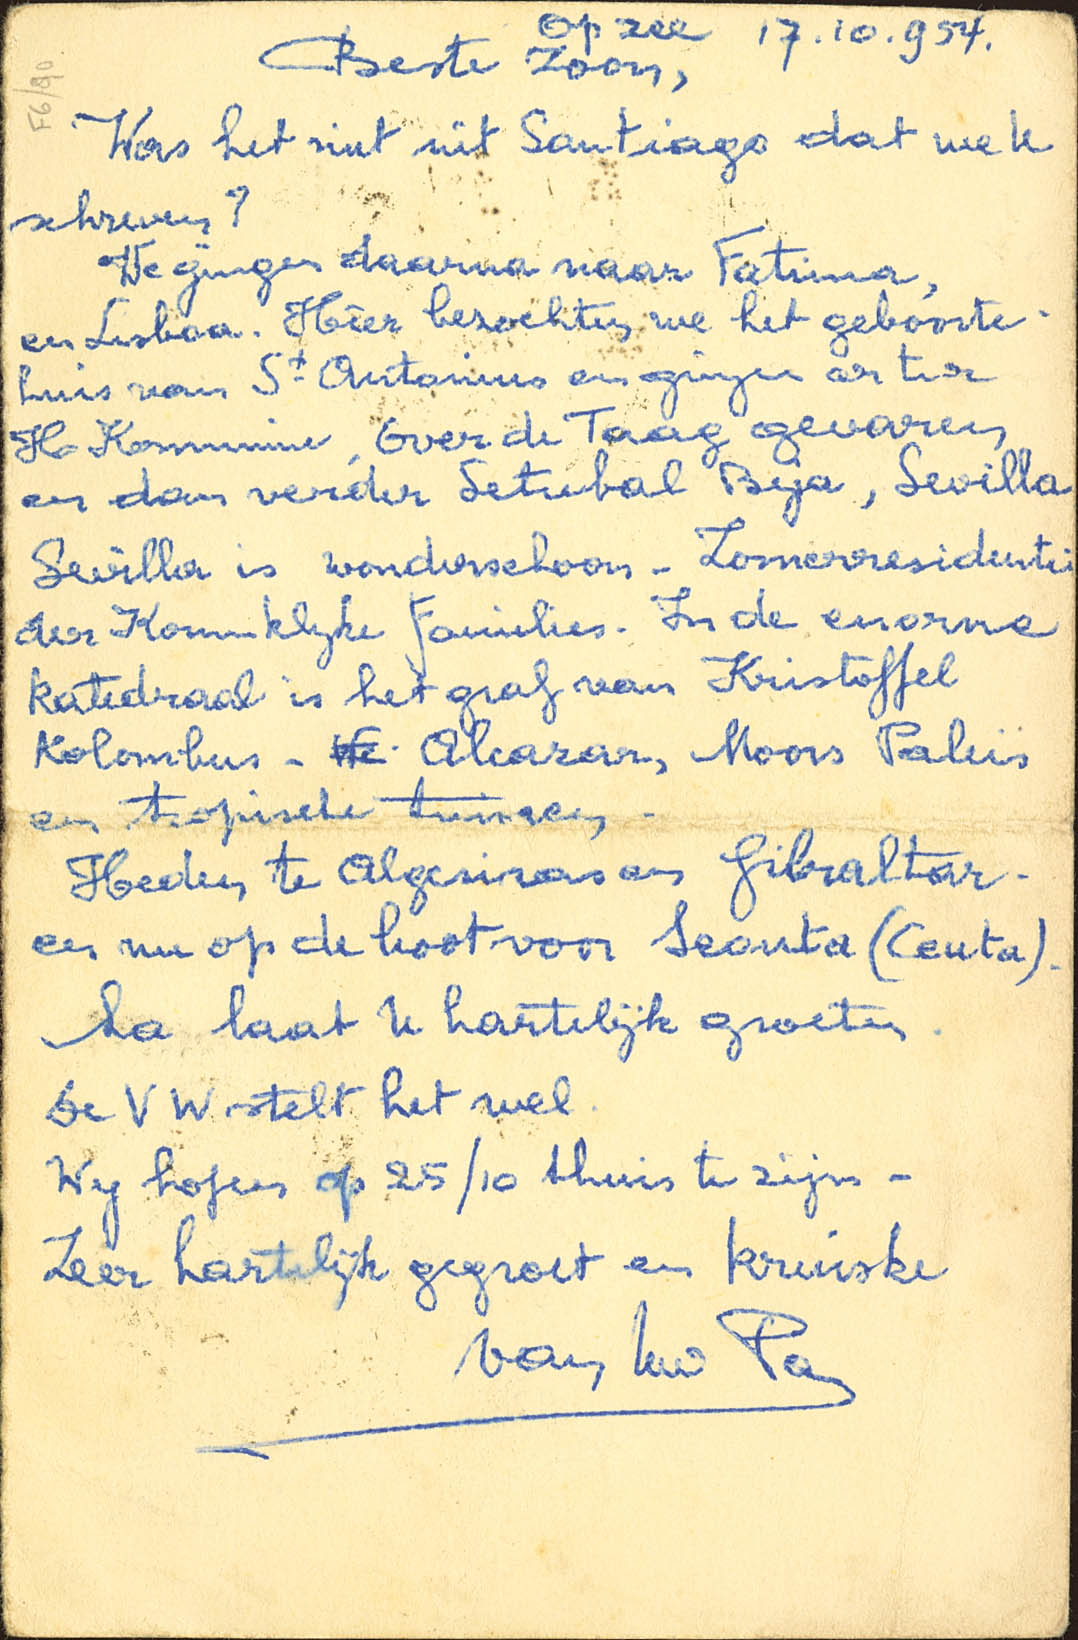 Op zee 17.10.954.
Beste Zoon,
F6/90
Was het niet uit Santiago dat we U
schreven?
We gingen daarna naar Fatima,
en Lisboa. Hier bezochten we het geboorte-
huis van St Antonius en gingen er ter
H. Kommunie, Over de Taag gevaren
en dan verder Setubal Beja, Sevilla
Sevilla is wonderschoon - Zomerresidentie
der Koninklijke families. In de enorme
katedraal is het graf van Kristoffel
Kolombus - Alcazar, Moors Paleis
en tropische tuinen -
Heden te Algesiras en Gibraltar -
en nu op de boot voor Seouta (Ceuta).
Ma laat U hartelijk groeten.
De VW stelt het wel.
Wij hopen op 25/10 thuis te zijn -
Zeer hartelijk gegroet en kruiske
van Uw Pa